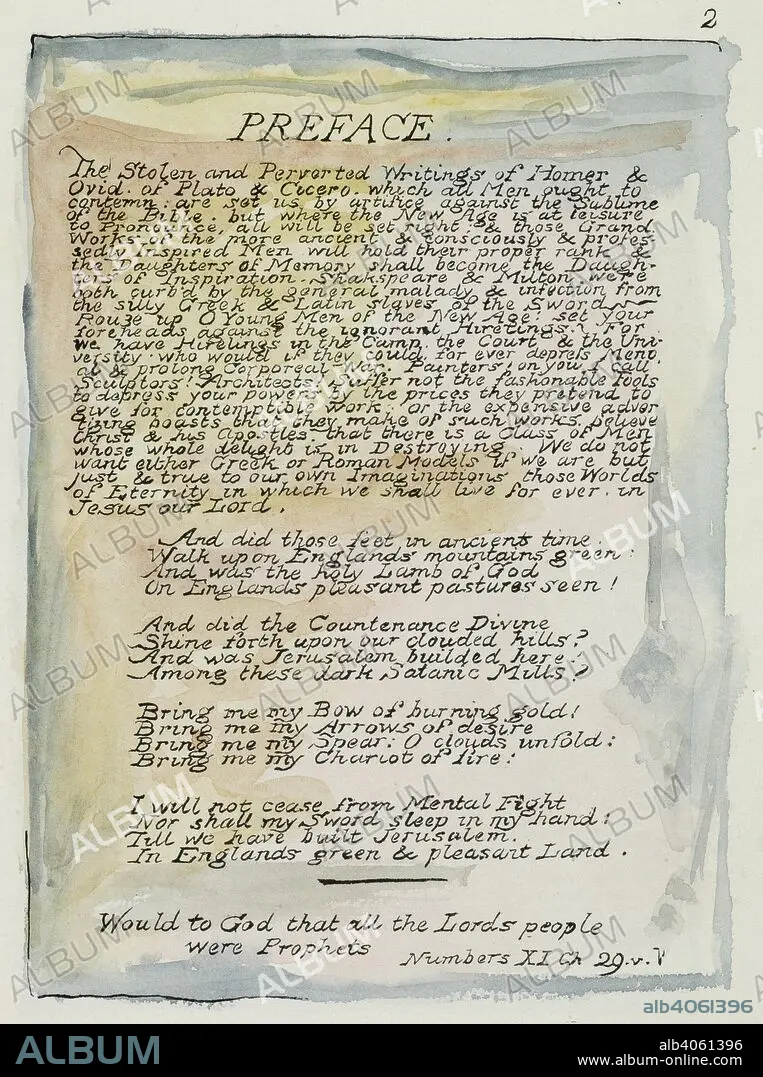 2
PREFACE.
The Stolen and Perverted Writings of Homer &
Ovid. of Plato & Cicero. which all Men ought to
contemn: are set us by artifice against the Sublime
of the Bible. but where the New Age is at leisure
to Pronounce, all will be set right: & those Grand
Works of the more ancient & consciously & profes-
sedly Inspired Men will hold their proper rank. &
the Daughters of Memory shall become the Daugh-
ters of Inspiration. Shakspeare & Milton were
both curb'd by the general malady & infection from
the silly Greek & Latin slaves of the Sword
Rouze up O Young Men of the New Age! set your
foreheads against the ignorant Hirelings! For
we have Hirelings in the Camp, the Court, & the Uni-
versity. who would if they could, for ever depress Ment-
al & prolong Corporeal War. Painters! on you I call
Sculptors! Architects! Suffer not the fashonable Fools
to depress your powers by the prices they pretend to
give for contemptible work. or the expensive adver
tizing boasts that they make of such works. believe
Christ & his Apostles. that there is a Class of Men
whose whole delight is in Destroying. We do not
want either Greek or Roman Models if we are but
just & true to our own Imaginations those Worlds
of Eternity in which we shall live for ever. in
Jesus our Lord.
And did those feet in ancient time.
Walk upon Englands mountains green:
And was the holy Lamb of God
On Englands pleasant pastures seen!
And did the Countenance Divine
Shine forth upon our clouded hills?
And was Jerusalem builded here!
Among these dark Satanic Mills?
Bring me my Bow of burning gold!
Bring me my Arrows of desire
Bring me my Spear: O clouds unfold:
Bring me my Chariot of fire!
I will not cease from Mental Fight
Nor shall my Sword sleep in my hand:
Till we have built Jerusalem.
In Englands green & pleasant Land.
Would to God that all the Lords people
were Prophets Numbers XI Ch 29.v.V
alb4061396
ALBUM
alb4061396
www.album-online.com